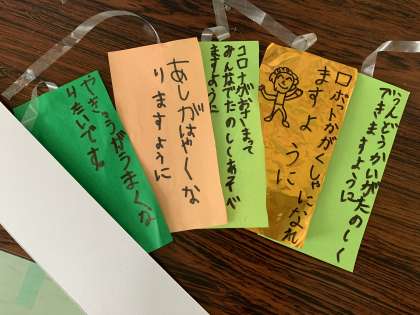 うんどうかいがたのしく
できますように
ロボットかがくしゃになれ
ますように
コロナがおさまって
みんなでたのしくあそべ
ますように
あしがはやくな
りますように
やきゅうがうまくな
りたいです。